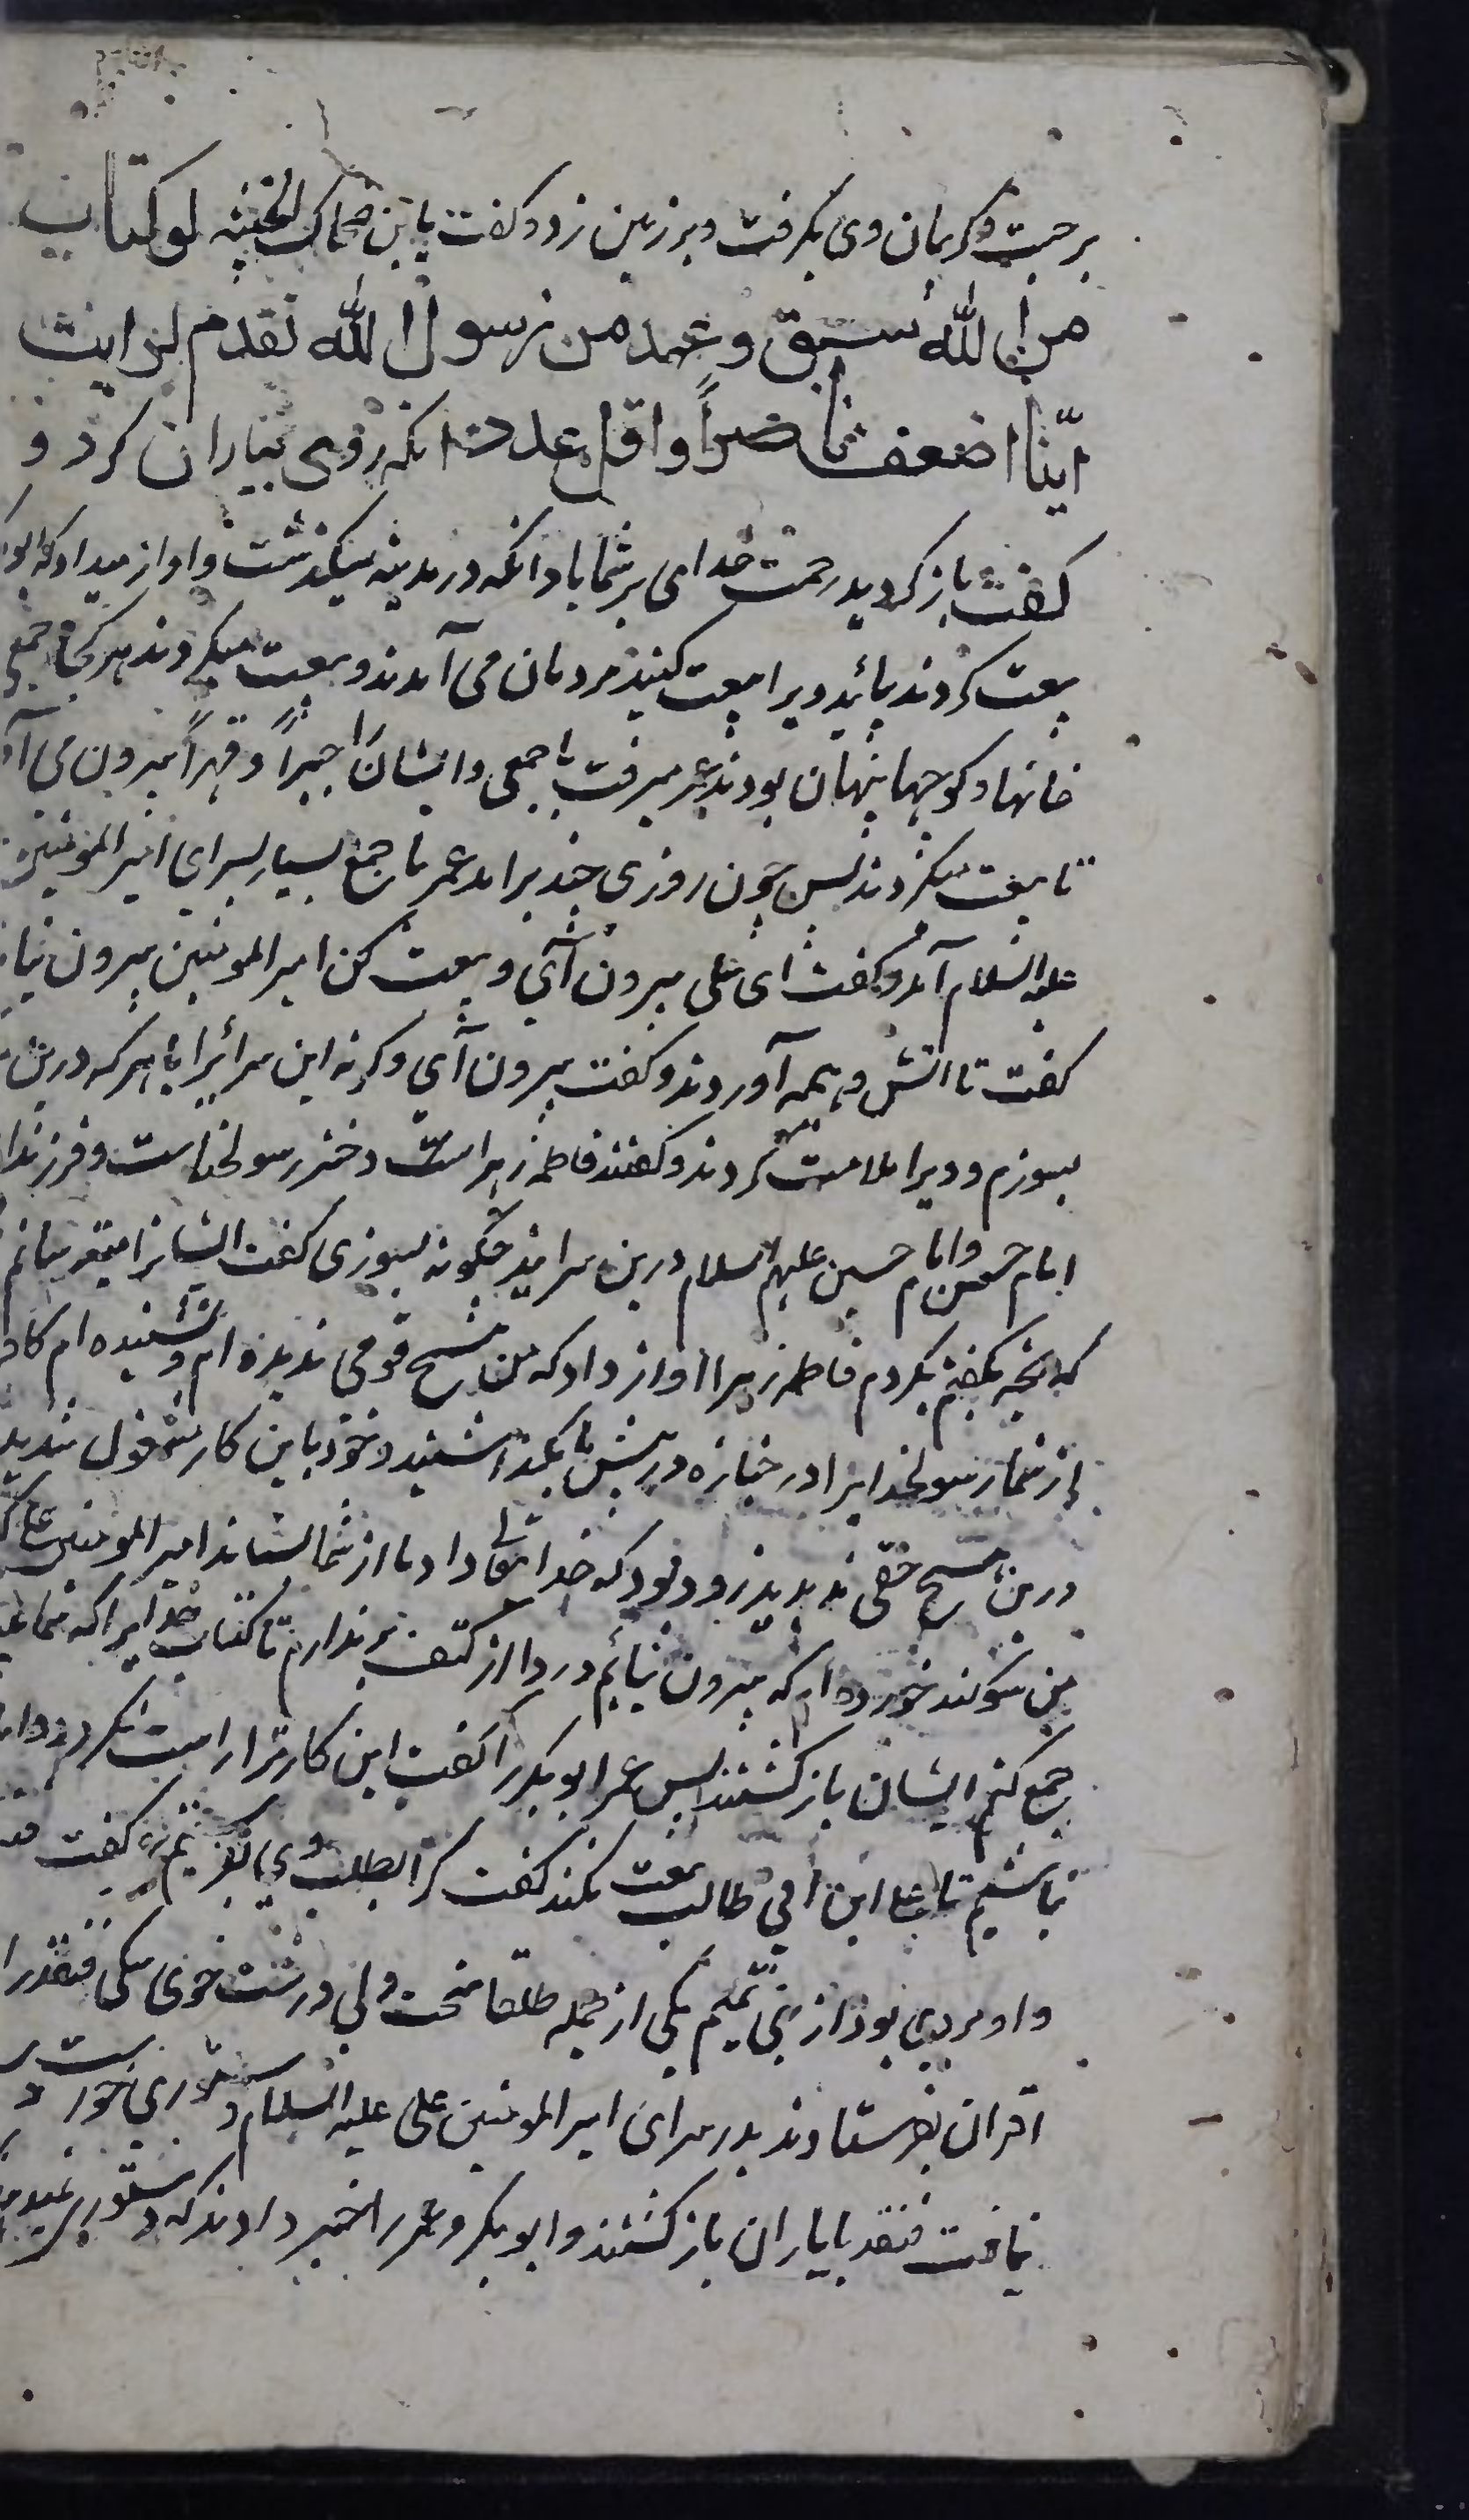 برجست و کریبان وی بکرفت و بر زمین زد و کفت یا بن ضحاک الحبشیه لو کتاب
من الله سبق و عهد من رسول الله تقدم لرایت
اینا اضعف ناصراً و اقل عددا انکه روی بیاران کرد و
کفت باز کردید رحمت خدای بر شما باد انکه در مدینه میکذشت و اواز میداد که ابو
بیعت کردند بیائید ویرا بیعت کنید مردمان می آمدند و بیعت میکردند هر کجا جمعی
خانها و کوچها پنهان بودند عمر میرفت با جمعی و ایشان را جبراً و قهراً بیرون می آو
تا بیعت میکردند پس چون روزی چند برامد عمر با جمع بسیار بسرای امیر المؤمنین
علیه السلام آمد و کفت ای علی بیرون آی و بیعت کن امیر المومنین بیرون نیا
کفت تا اتش و هیمه آوردند و کفت بیرون آی و کرنه این سرای را با هر که درین
بسوزم و ویرا ملامت کردند و کفتند فاطمه زهرا است دختر رسولخداست و فرزندا
امام حسن و امام حسین علیهم السلام درین سرایند چکونه بسوزی کفت ایشانرا میترسانم
که نچه بکفتم بکردم فاطمه زهرا اواز داد که من هیچ قومی ندیده ام و نشنیده ام کافر
از شما رسولخدایرا در جنازه در پیش ما بکذاشتید و خود باین کار مشغول شدید
درین هیچ حقی ندیدید زود بود که خدا تعالی داد ما از شما بستاند امیر المومنین علی
من سوکند خورده ام که بیرون نیایم و ردا از کتف برندارم تا کتاب خدایرا که شما
جمع کنم ایشان باز کشتند پس عمر ابوبکر را کفت این کار ترا راست نکردد و ما
نباشیم تا علی ابن ابی طالب بیعت نکند کفت کرا بطلب وی بفرستیم کفت قنفد
و او مردی بود از بنی تمیم یکی از جمله طلقا سخت دلی درشت خوی سکی قنفذ را
اقران بفرستادند بدر سرای امیر المومنین علی علیه السلام دستوری خواست
نیافت قنفد با یاران باز کشتند و ابوبکر و عمر را خبر دادند که دستوری نمید